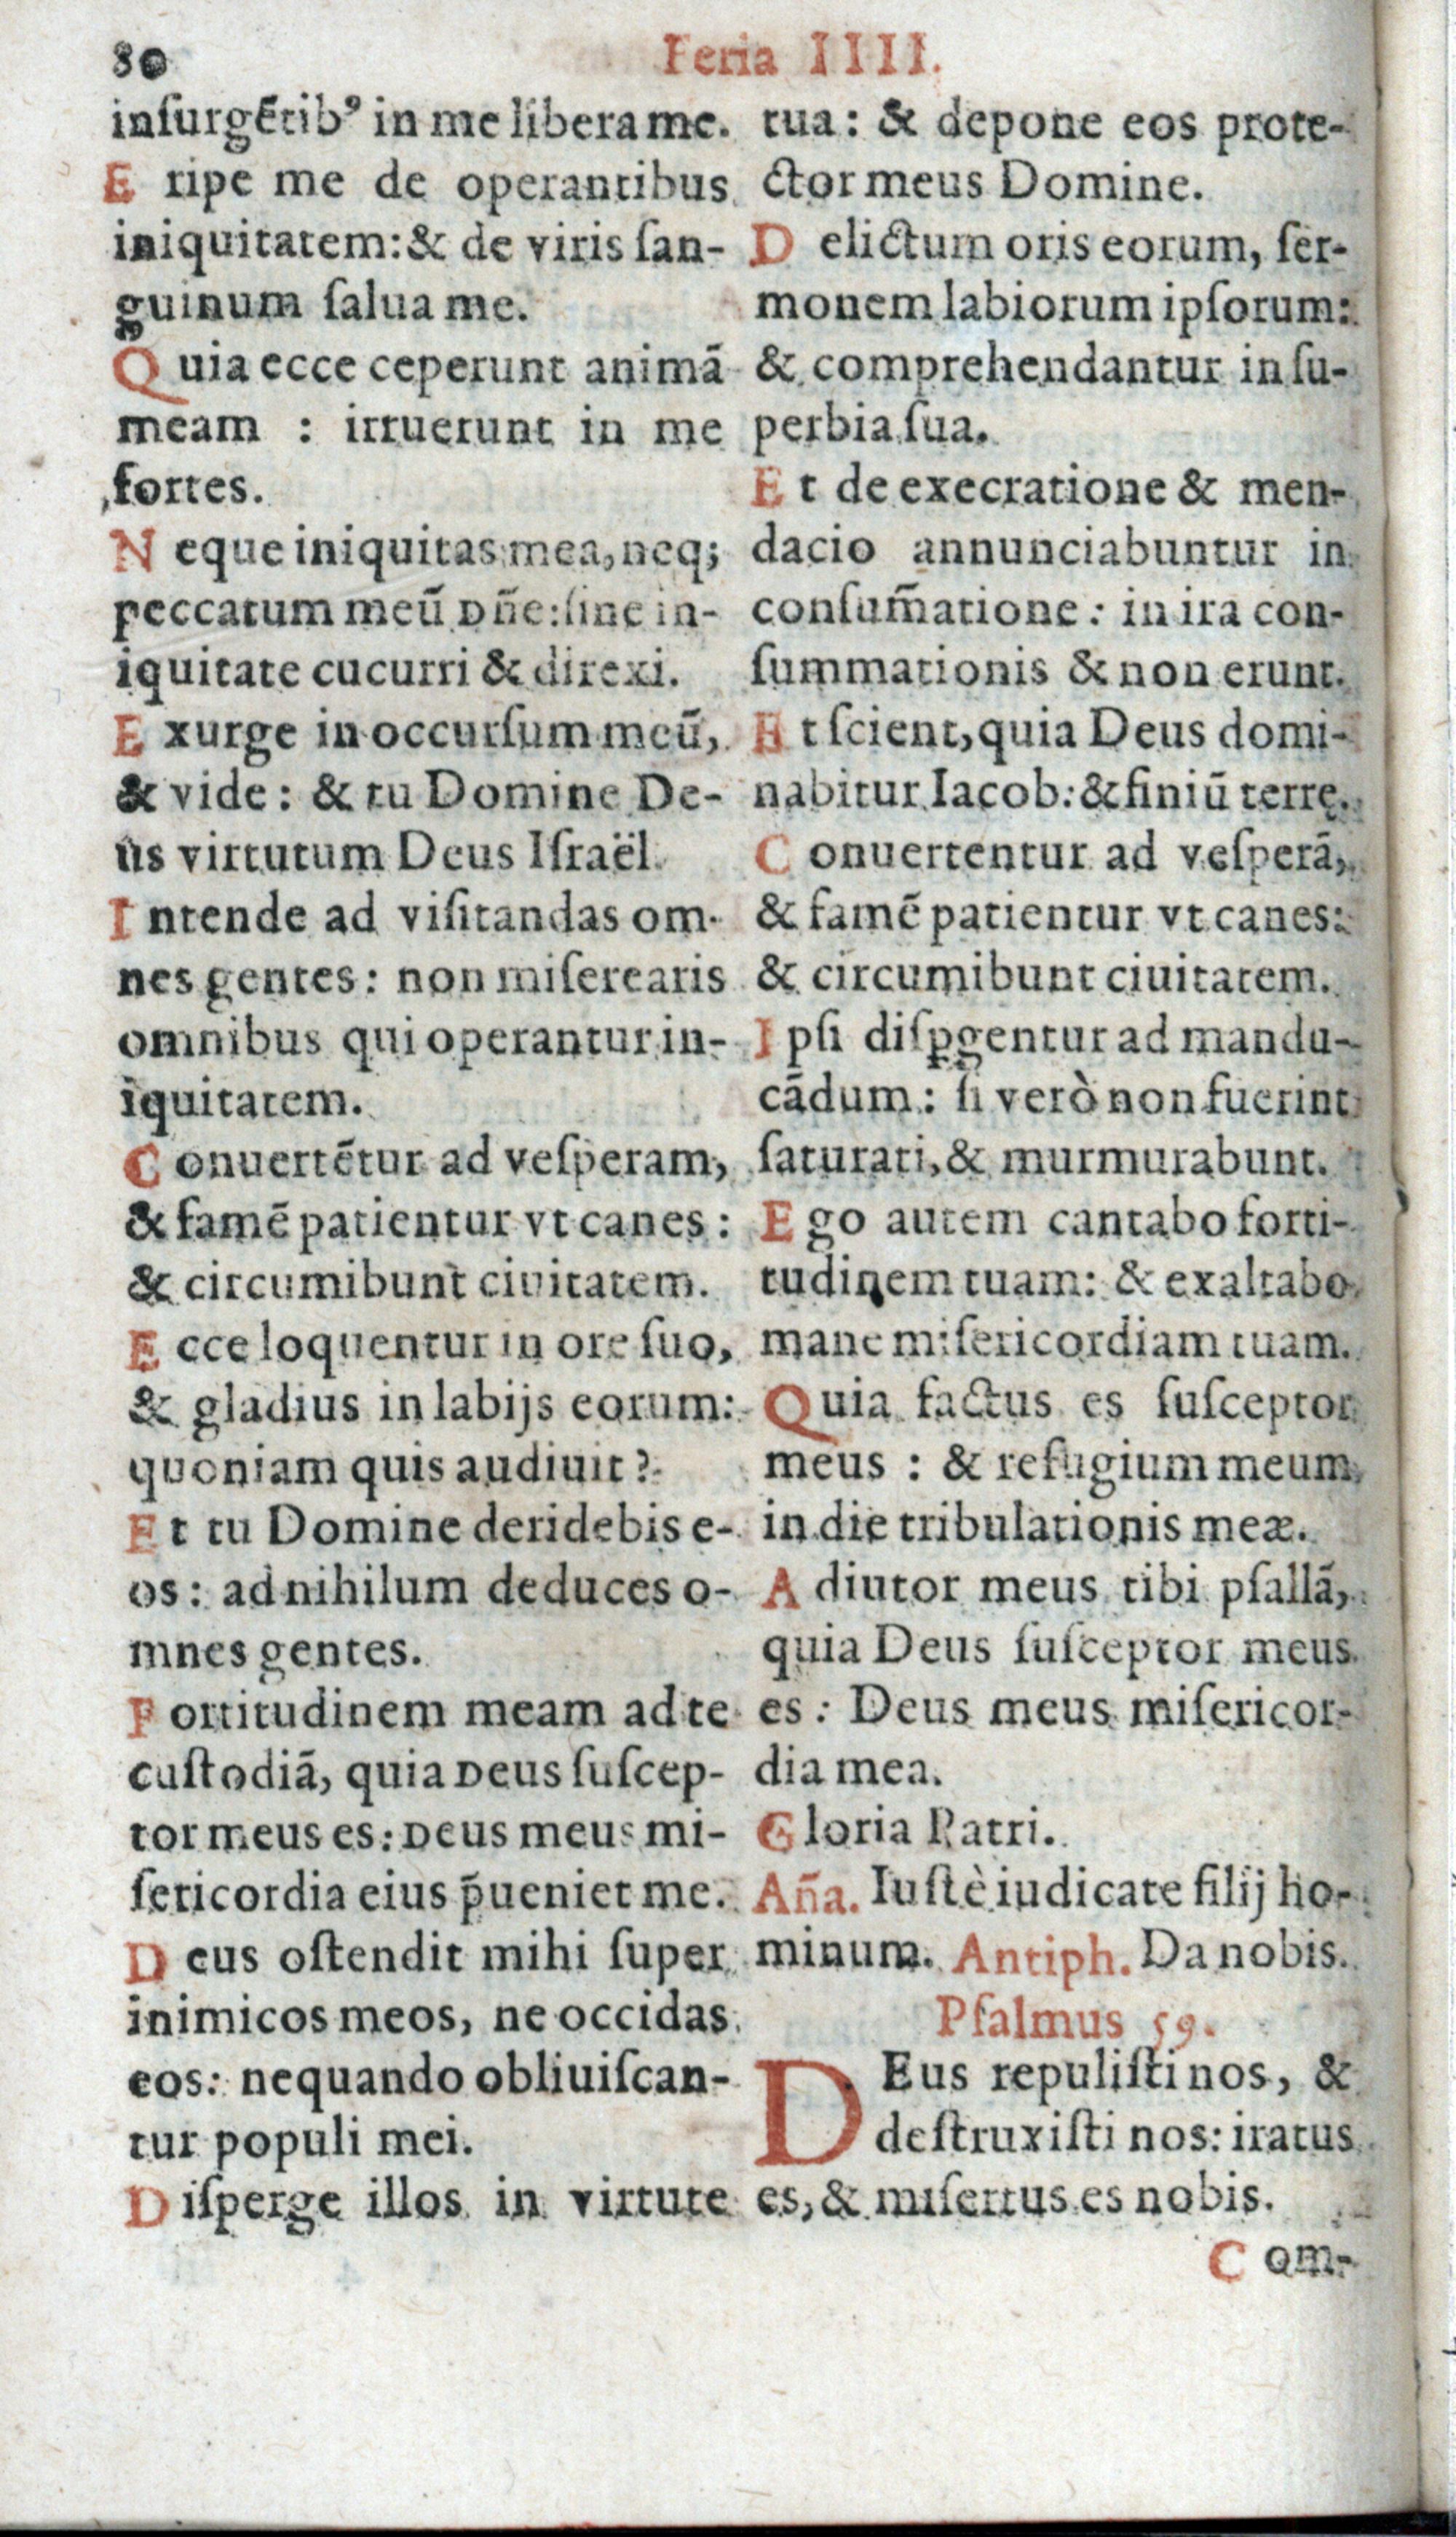 80
Feria IIII.
inſurgẽtibꝰ in me libera me.
E ripe me de operantibus
iniquitatem: & de viris ſan-
guinum ſalua me.
Q uia ecce ceperunt animã
meam : irruerunt in me
fortes.
N eque iniquitas mea, neq;
peccatum meũ Dñe: ſine in-
iquitate cucurri & direxi.
E xurge in occurſum meũ,
& vide: & tu Domine De-
us virtutum Deus Iſraël.
I ntende ad viſitandas om-
nes gentes: non miſerearis
omnibus qui operantur in-
iquitatem.
C onuertẽtur ad veſperam,
& famẽ patientur vt canes:
& circumibunt ciuitatem.
E cce loquentur in ore ſuo,
& gladius in labijs eorum:
quoniam quis audiuit?
E t tu Domine deridebis e-
os: ad nihilum deduces o-
mnes gentes.
F ortitudinem meam ad te
cuſtodiã, quia Deus ſuſcep-
tor meus es: Deus meus mi-
ſericordia eius p̃ueniet me.
D eus oſtendit mihi ſuper
inimicos meos, ne occidas
eos: nequando obliuiſcan-
tur populi mei.
D iſperge illos in virtute
tua: & depone eos prote-
ctor meus Domine.
D elictum oris eorum, ſer-
monem labiorum ipſorum:
& comprehendantur in ſu-
perbia ſua.
E t de execratione & men-
dacio annunciabuntur in
conſum̃atione: in ira con-
ſummationis & non erunt.
E t ſcient, quia Deus domi-
nabitur Iacob: & finiũ terrę.
C onuertentur ad veſperã,
& famẽ patientur vt canes:
& circumibunt ciuitatem.
I pſi diſꝑgentur ad mandu-
cãdum: ſi verò non fuerint
ſaturati, & murmurabunt.
E go autem cantabo forti-
tudinem tuam: & exaltabo
mane miſericordiam tuam.
Q uia factus es ſuſceptor
meus : & refugium meum
in die tribulationis meæ.
A diutor meus tibi pſallã,
quia Deus ſuſceptor meus
es: Deus meus miſericor-
dia mea.
G loria Patri.
Aña. Iuſtè iudicate filij ho-
minum. Antiph. Da nobis.
Pſalmus 59.
D Eus repuliſti nos, &
deſtruxiſti nos: iratus
es, & miſertus es nobis.
C om-